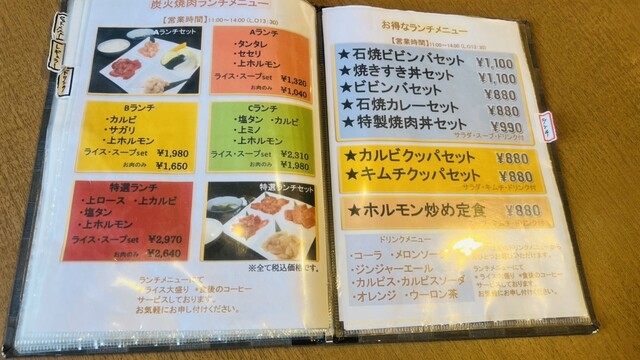 炭火焼肉ランチメニュー
【営業時間】11:00～14:00(L.O13:30)
Aランチセット
Aランチ
・タンタレ
・セセリ
・上ホルモン
ライス・スープset ¥1,320
お肉のみ ¥1,040
Bランチ
・カルビ
・サガリ
・上ホルモン
ライス・スープset ¥1,980
お肉のみ ¥1,650
Cランチ
・塩タン ・カルビ
・上ミノ
・上ホルモン
ライス・スープset ¥2,310
お肉のみ ¥1,980
特選ランチ
・上ロース ・上カルビ
・塩タン
・上ホルモン
ライス・スープset ¥2,970
お肉のみ ¥2,640
特選ランチセット
※全て税込価格です。
ランチメニューにて
●ライス大盛り ●食後のコーヒー
サービスしております。
お気軽にお申し付けください。
お得なランチメニュー
【営業時間】11:00～14:00(L.O13:30)
★石焼ビビンバセット ¥1,100
★焼きすき丼セット ¥1,100
★ビビンバセット ¥880
★石焼カレーセット ¥880
★特製焼肉丼セット ¥990
サラダ・スープ・ドリンク付
★カルビクッパセット ¥880
★キムチクッパセット ¥880
サラダ・キムチ・ドリンク付
★ホルモン炒め定食 ¥880
キムチ・ドリンク付
ドリンクメニュー
・コーラ ・メロンソーダ
・ジンジャーエール
・カルピス・カルピスソーダ
・オレンジ ・ウーロン茶
ランチメニューにて
●ライス大盛り ●食後の
サービスしております。
お気軽にお申し付けください。